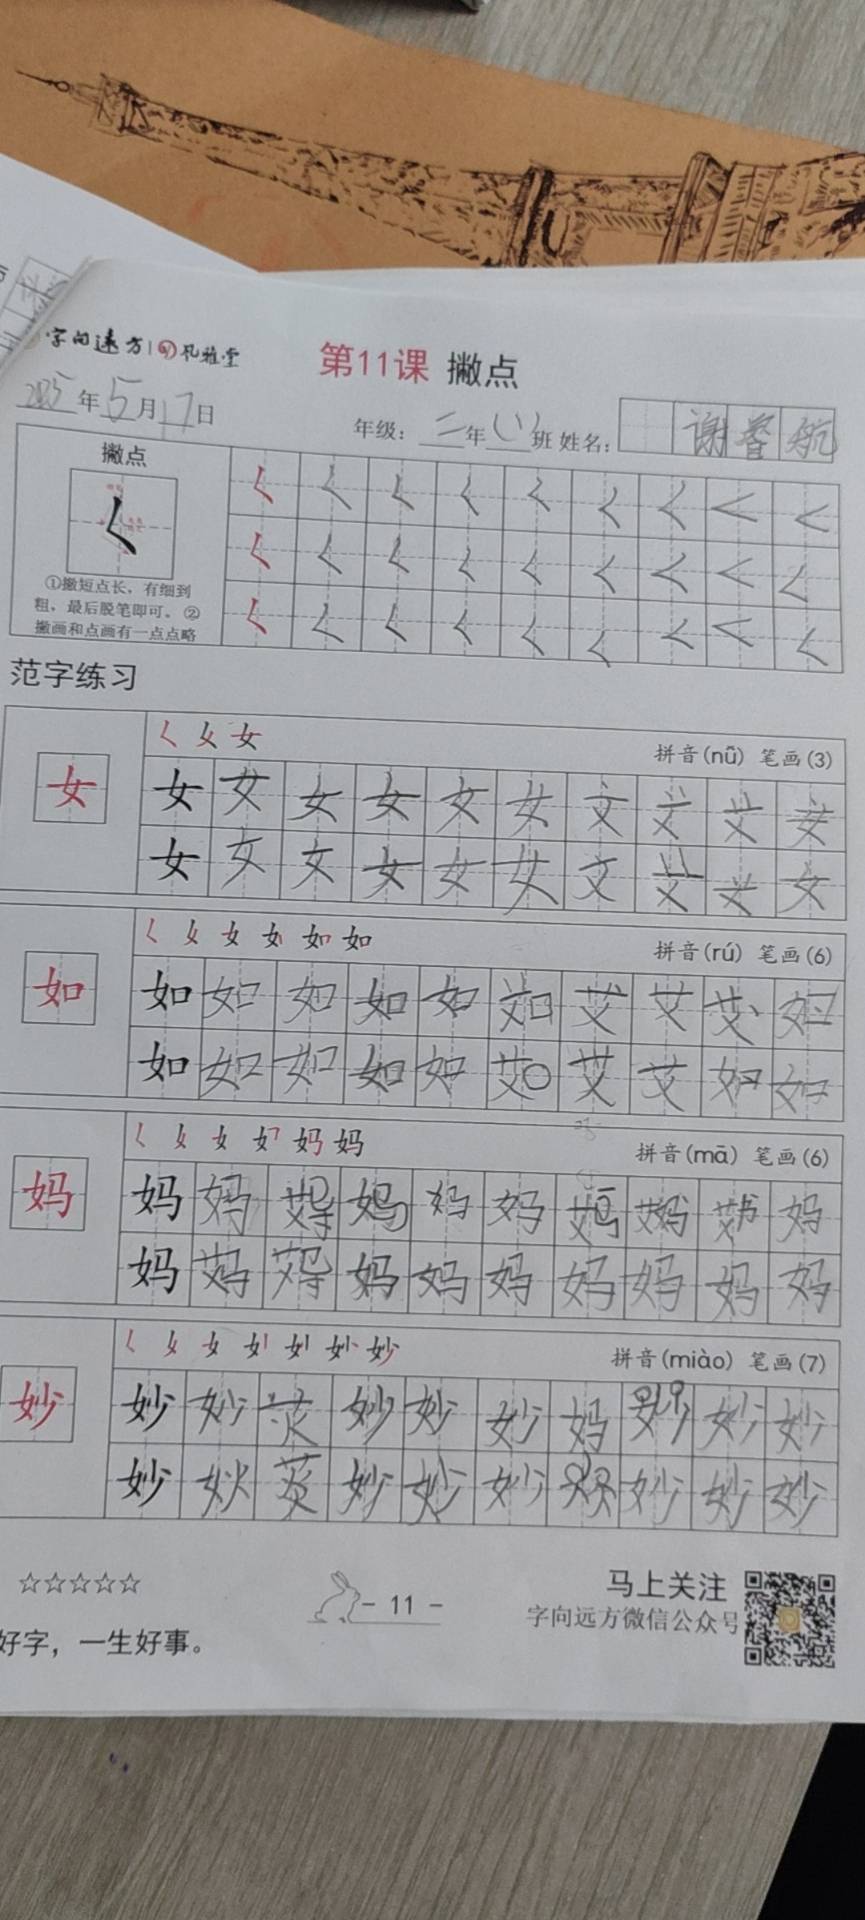 字向远方 风雅堂
第11课 撇点
2025年5月17日
年级：二年(1)班 姓名：谢睿航
撇点
①撇短点长，有细到
粗，最后脱笔即可。②
撇画和点画有一点点略
范字练习
女
拼音(nǚ) 笔画(3)
女 女 女 女 女 女
女 女 女 女 女 女 女
如
拼音(rú) 笔画(6)
如 如 如 如 如
如 如 如 如 如 如 如
妈
拼音(mā) 笔画(6)
妈 妈 妈 妈 妈 妈
妈 妈 妈 妈 妈 妈 妈 妈
妙
拼音(miào) 笔画(7)
妙 妙 妙 妙 妙 妈 妙 妙
妙 妙 妙 妙 妙 妙 妙
☆☆☆☆☆
- 11 -
马上关注
字向远方微信公众号
好字，一生好事。